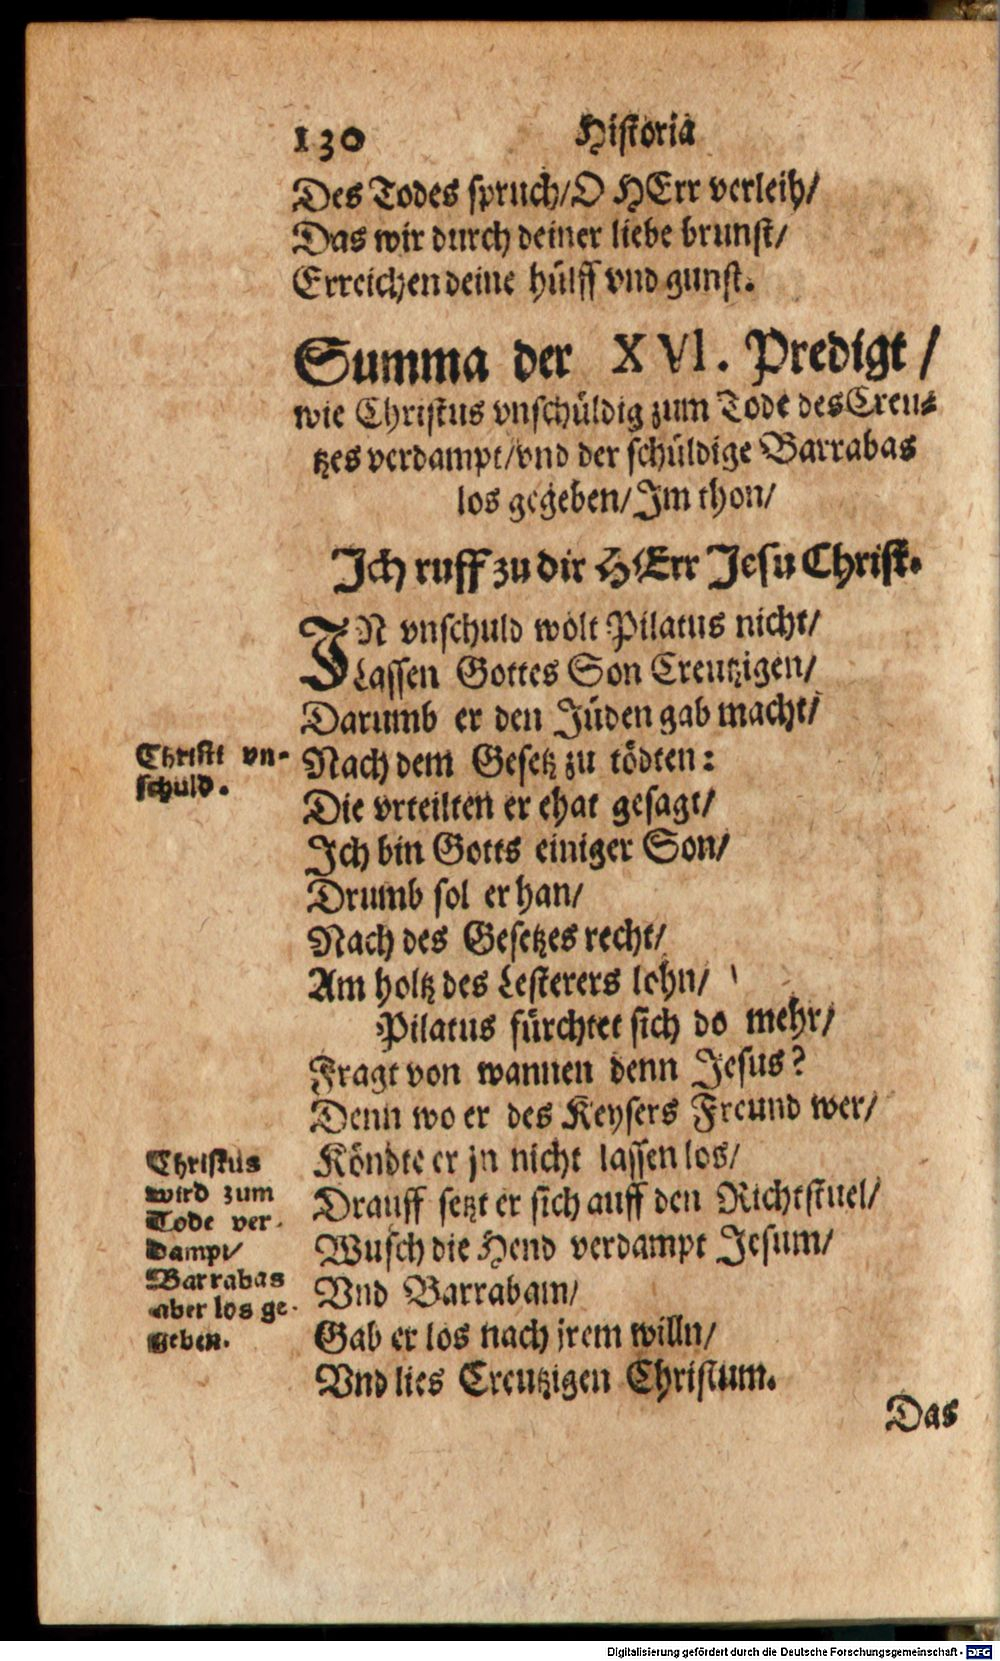 130 Historia
Des Todes spruch/ O HErr verleih/
Das wir durch deiner liebe brunst/
Erreichen deine hülff vnd gunst.
Summa der XVI. Predigt/
wie Christus vnschüldig zum Tode des Creu-
tzes verdampt/ vnd der schüldige Barrabas
los gegeben/ Im thon/
Ich ruff zu dir HErr Jesu Christ.
IN vnschuld wolt Pilatus nicht/
Lassen Gottes Son Creutzigen/
Darumb er den Jüden gab macht/
Christi vn-
schuld.
Nach dem Gesetz zu tödten:
Die vrteilten er ehat gesagt/
Ich bin Gotts einiger Son/
Drumb sol er han/
Nach des Gesetzes recht/
Am holtz des Lesterers lohn/
Pilatus fürchtet sich do mehr/
Fragt von wannen denn Jesus?
Denn wo er des Keysers Freund wer/
Christus
wird zum
Tode ver-
dampt/
Barrabas
aber los ge-
geben.
Köndte er jn nicht lassen los/
Drauff setzt er sich auff den Richtstuel/
Wusch die Hend verdampt Jesum/
Vnd Barrabam/
Gab er los nach jrem willn/
Vnd lies Creutzigen Christum.
Das
Digitalisierung gefördert durch die Deutsche Forschungsgemeinschaft - DFG